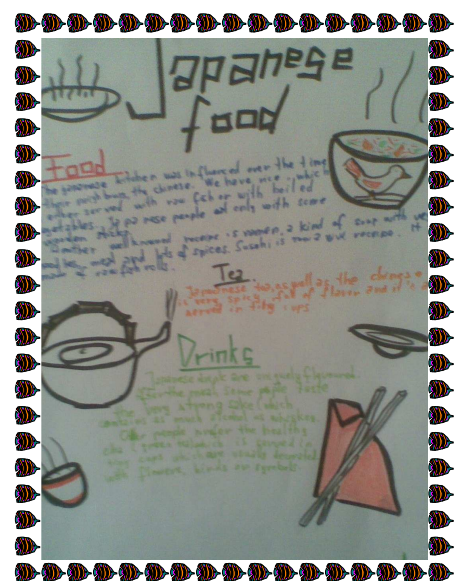 Japanese
food
Food
The japanese kitchen was influenced over the time
their neighbours the chinese. We have rice, which
either served with raw fish or with boiled
vegetables. Japanese people eat only with some
wooden sticks.
Another well known receipe is ramen, a kind of soup with ve
meat and lots of spices. Sushi is rice receipe. It
made of raw fish rolls.
Tea
Japanese tea, as well as the chinese
is very spicy, full of flavor and it is
served in tiny cups
Drinks
Japanese drink are uniquely flavoured.
After the meal some people taste
the very strong sake, which
contains as much alcohol as whiskey.
Other people prefer the healthy
cha (green tea) which is served in
cups which are nicely decorated
with flowers, birds or symbols.